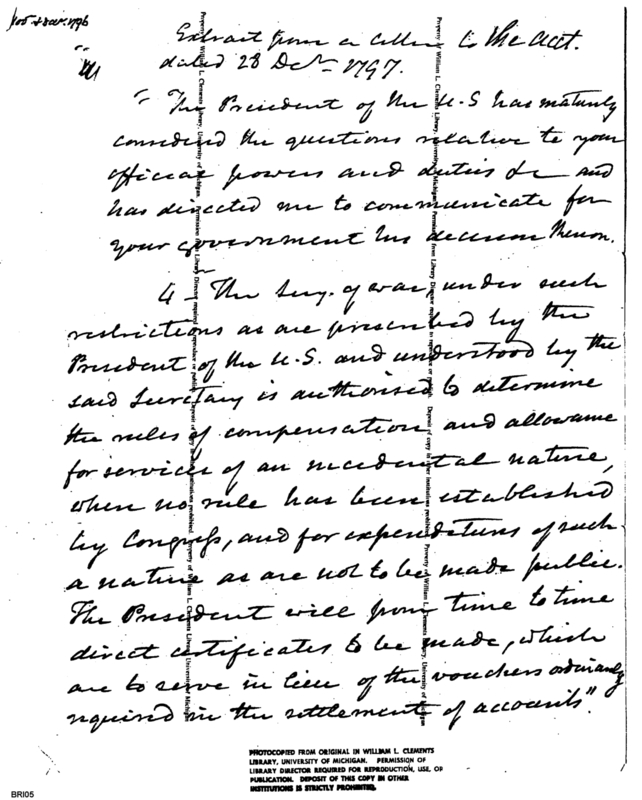 Extract from a letter to the acct.
dated 28 Dec 1797.
"The President of the U.S has maturely
considered the questions relative to your
official powers and duties &c and
has directed me to communicate for
your government his decision thereon.
4 - The Secy. of war, under such
restrictions as are prescribed by the
President of the U.S. and understood by the
said Secretary is authorised to determine
the rules of compensation and allowance
for services of an incidental nature,
when no rule has been established
by Congress, and for expenditures of such
a nature as are not to be made public.
The President will from time to time
direct certificates to be made, which
are to serve in lieu of the vouchers ordinarily
required in the settlement of accounts".
Property of William L. Clements Library, University of Michigan. Permission from Library Director required
Property of William L. Clements Library, University of Michigan
PHOTOCOPIED FROM ORIGINAL IN WILLIAM L. CLEMENTS
LIBRARY, UNIVERSITY OF MICHIGAN. PERMISSION OF
LIBRARY DIRECTOR REQUIRED FOR REPRODUCTION, USE, OR
PUBLICATION. DEPOSIT OF THIS COPY IN OTHER
INSTITUTIONS IS STRICTLY PROHIBITED.
BRI05